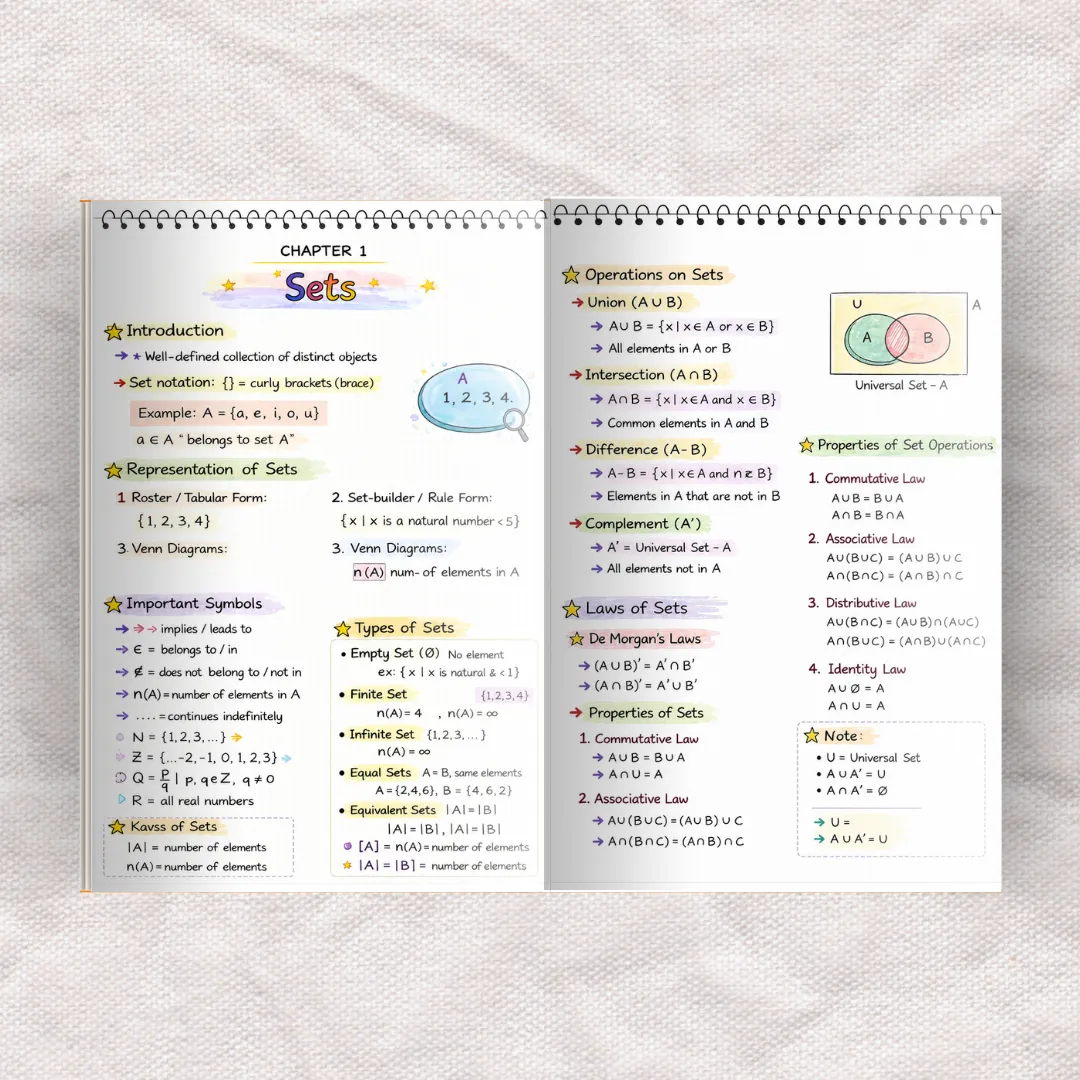 CHAPTER 1
Sets
Introduction
* Well-defined collection of distinct objects
Set notation: {} = curly brackets (brace)
Example: A = {a, e, i, o, u}
a ∈ A “belongs to set A”
A
1, 2, 3, 4.
Representation of Sets
1 Roster / Tabular Form:
{1, 2, 3, 4}
3. Venn Diagrams:
2. Set-builder / Rule Form:
{x | x is a natural number < 5}
3. Venn Diagrams:
n(A) num- of elements in A
Important Symbols
→ → → implies / leads to
→ ∈ = belongs to / in
→ ∉ = does not belong to / not in
→ n(A) = number of elements in A
→ .... = continues indefinitely
N = {1, 2, 3, ...} →
Z = {...-2, -1, 0, 1, 2, 3}
Q = p/q | p, q∈Z, q ≠ 0
R = all real numbers
Kavss of Sets
|A| = number of elements
n(A) = number of elements
Types of Sets
• Empty Set (Ø) No element
ex: {x | x is natural & < 1}
• Finite Set {1,2,3,4}
n(A) = 4 , n(A) = ∞
• Infinite Set {1,2,3, ...}
n(A) = ∞
• Equal Sets A = B, same elements
A = {2,4,6}, B = {4, 6, 2}
• Equivalent Sets |A| = |B|
|A| = |B|, |A| = |B|
[A] = n(A) = number of elements
|A| = |B| = number of elements
Operations on Sets
→ Union (A ∪ B)
→ A ∪ B = {x | x ∈ A or x ∈ B}
→ All elements in A or B
→ Intersection (A ∩ B)
→ A ∩ B = {x | x ∈ A and x ∈ B}
→ Common elements in A and B
→ Difference (A - B)
→ A - B = {x | x ∈ A and n B}
→ Elements in A that are not in B
→ Complement (A′)
→ A′ = Universal Set - A
→ All elements not in A
Laws of Sets
De Morgan's Laws
→ (A ∪ B)′ = A′ ∩ B′
→ (A ∩ B)′ = A′ ∪ B′
→ Properties of Sets
1. Commutative Law
→ A ∪ B = B ∪ A
→ A ∩ U = A
2. Associative Law
→ A∪(B∪C) = (A∪B) ∪ C
→ A∩(B∩C) = (A∩B) ∩ C
U
A
A
B
Universal Set - A
Properties of Set Operations
1. Commutative Law
A∪B = B∪A
A∩B = B∩A
2. Associative Law
A∪(B∪C) = (A∪B)∪C
A∩(B∩C) = (A∩B)∩C
3. Distributive Law
A∪(B∩C) = (A∪B)∩(A∪C)
A∩(B∪C) = (A∩B)∪(A∩C)
4. Identity Law
A∪Ø = A
A∩U = A
Note:
• U = Universal Set
• A∪A′ = U
• A∩A′ = Ø
→ U =
→ A∪A′ = U